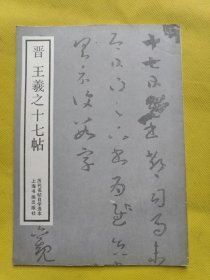 晋 王羲之十七帖
历代名帖自学选本
上海书画出版社
十七日先書郗司馬未
去即日得足下書為慰先
書以具示復數字